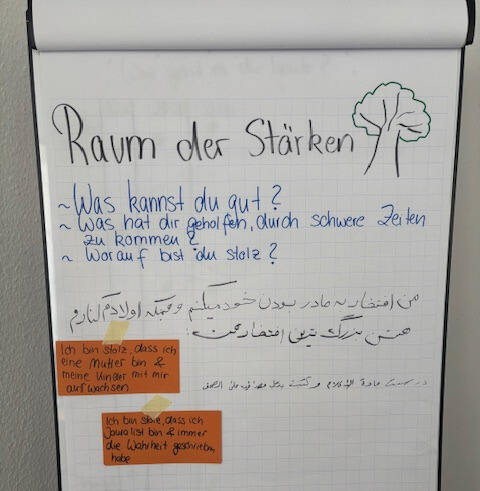 Raum der Stärken
~ Was kannst du gut?
~ Was hat dir geholfen, durch schwere Zeiten
zu kommen?
~ Worauf bist du stolz?
من افتخار به مادر بودن خود میکنم و همکه اولادم کنارم
هستن بزرگ ترین افتخار من
Ich bin stolz, dass ich
eine Mutter bin &
meine Kinder mit mir
aufwachsen
درست مادة الإعلام و كتبت بكل على الصحف
Ich bin stolz, dass ich
Journalist bin & immer
die Wahrheit geschrieben
habe